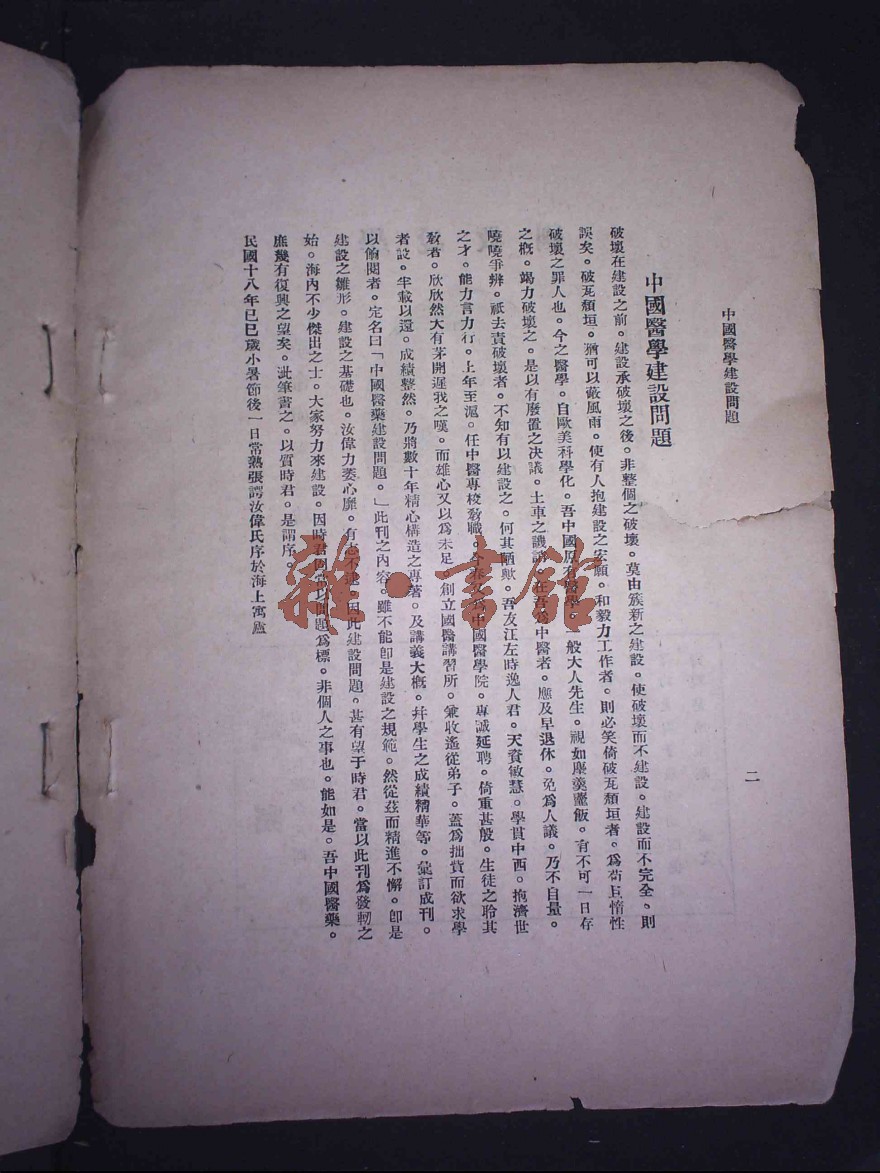 中國醫學建設問題
二
中國醫學建設問題
破壞在建設之前。建設承破壞之後。非整個之破壞。莫由簇新之建設。使破壞而不建設。建設而不完全。則
誤矣。破瓦頹垣。猶可以蔽風雨。使有人抱建設之宏願。和毅力工作者。則必笑倚破瓦頹垣者。為苟且惰性
破壞之罪人也。今之醫學。自歐美科學化。吾中國原有醫學。一般大人先生。視如塵羹土飯。有不可一日存
之概。竭力破壞之。是以有廢置之决議。土車之譏誚。在吾為中醫者。應及早退休。免為人議。乃不自量。
嘵嘵爭辨。祇去責破壞者。不知有以建設之。何其陋歟。吾友江左時逸人君。天資敏慧。學貫中西。抱濟世
之才。能力言力行。上年至滬。任中醫專校敎職。今春又為中國醫學院。專誠延聘。倚重甚般。生徒之聆其
敎者。欣欣然大有茅開遲我之嘆。而雄心又以爲未足。創立國醫講習所。兼收遙從弟子。蓋爲拙貲而欲求學
者設。半載以還。成績整然。乃將數十年精心構造之專著。及講義大概。幷學生之成績精華等。彙訂成刊。
以餉閱者。定名曰「中國醫藥建設問題。」此刊之內容。雖不能卽是建設之規範。然從茲而精進不懈。卽是
建設之雛形。建設之基礎也。汝偉力委心靡。有志不逮。因此建設問題。甚有望于時君。當以此刊爲發軔之
始。海內不少傑出之士。大家努力來建設。因時君固當以問題爲標。非個人之事也。能如是。吾中國醫藥。
庶幾有復興之望矣。泚筆書之。以質時君。是謂序。
民國十八年己巳歲小暑節後一日常熟張諤汝偉氏序於海上寓廬
雜·書館